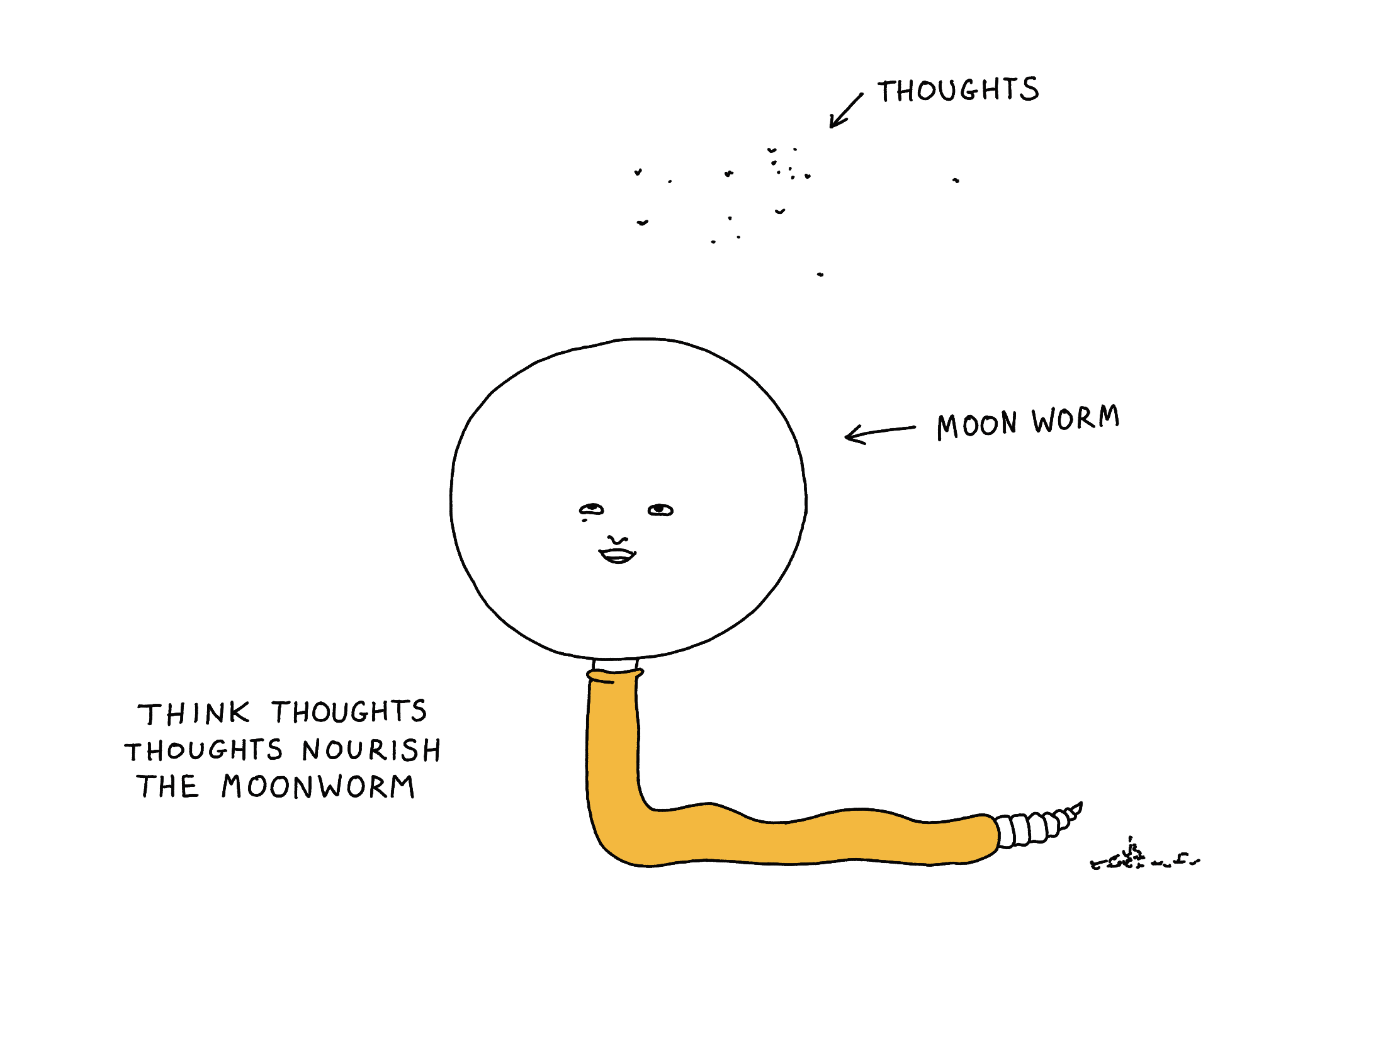 THOUGHTS
MOON WORM
THINK THOUGHTS
THOUGHTS NOURISH
THE MOONWORM